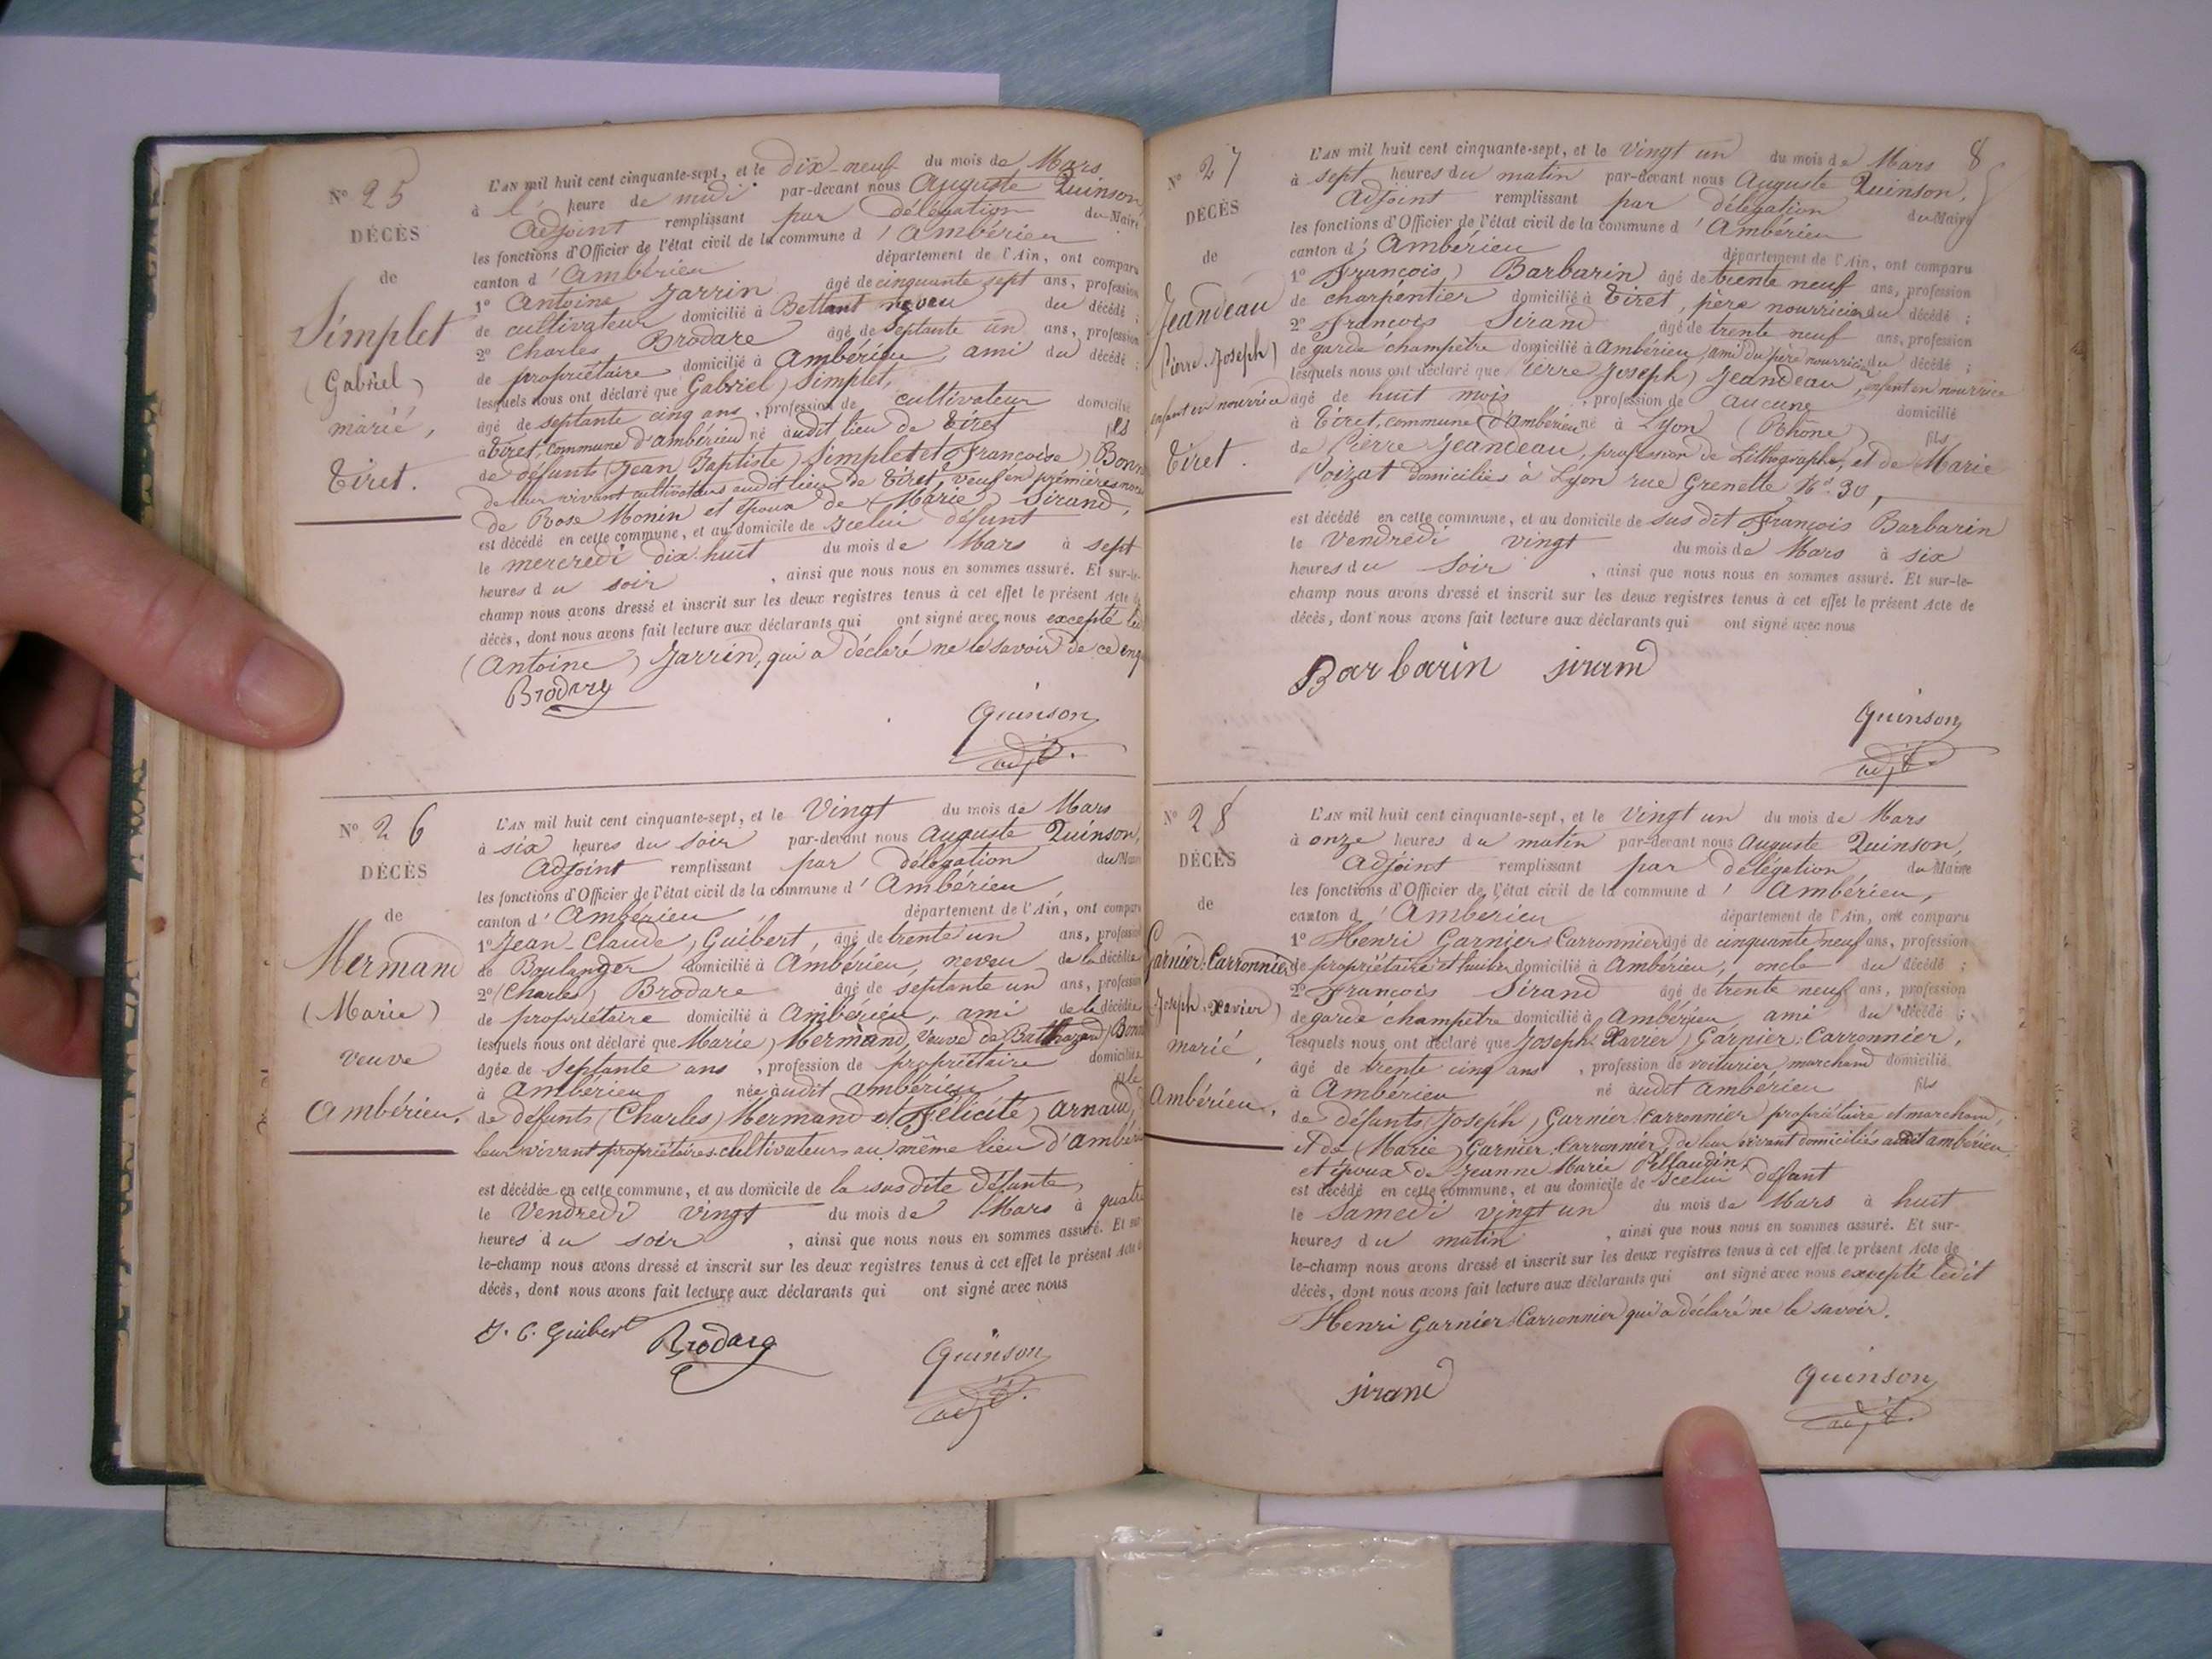 N° 25
DÉCÈS
de
Simplet
(Gabriel)
marié,
Tiret.
L'AN mil huit cent cinquante-sept, et le dix-neuf du mois de Mars
à l' heure de midi par-devant nous Auguste Quinson,
Adjoint remplissant par délégation du Maire
les fonctions d'Officier de l'état civil de la commune d' Ambérieu
canton d' Ambérieu département de l'Ain, ont comparu
1° Antoine Jarrin âgé de cinquante sept ans, profession
de cultivateur domicilié à Bettant neveu du décédé ;
2° Charles Brodare âgé de septante un ans, profession
de propriétaire domicilié à Ambérieu, ami du décédé ;
lesquels nous ont déclaré que Gabriel) Simplet,
âgé de septante cinq ans, profession de cultivateur domicilié
à Tiret, commune d'Ambérieu né audit lieu de Tiret fils
de défunts (Jean Baptiste) Simplet et Françoise) Bonn
de leur vivant cultivateurs audit lieu de Tiret veuf en premières noces
de Rose Monin et époux de (Marie) Sirand,
est décédé en cette commune, et au domicile de Icelui défunt
le mercredi dix-huit du mois de Mars à sept
heures du soir, ainsi que nous nous en sommes assuré. Et sur-le-
champ nous avons dressé et inscrit sur les deux registres tenus à cet effet le présent Acte de
décès, dont nous avons fait lecture aux déclarants qui ont signé avec nous excepté le
(Antoine) Jarrin, qui a déclaré ne le savoir de ce enq
Brodary
Quinson
adjt.
N° 26
DÉCÈS
de
Mermand
(Marie)
veuve
Ambérieu.
L'AN mil huit cent cinquante-sept, et le Vingt du mois de Mars
à six heures du soir par-devant nous Auguste Quinson,
Adjoint remplissant par délégation du Maire
les fonctions d'Officier de l'état civil de la commune d' Ambérieu
canton d' Ambérieu département de l'Ain, ont comparu
1° Jean-Claude) Guibert, âgé de trente un ans, profession
de Boulanger domicilié à Ambérieu, neveu de la décédée
2° (Charles) Brodare âgé de septante un ans, profession
de propriétaire domicilié à Ambérieu, ami de la décédée
lesquels nous ont déclaré que Marie) Mermand, Veuve de Balthazard) Bonn
âgée de septante ans, profession de propriétaire domiciliée
à Ambérieu née audit Ambérieu fille
de défunts (Charles) Mermand et (Félicité) Arnaud,
leur vivant propriétaires cultivateurs au même lieu d'Ambéri
est décédée en cette commune, et au domicile de la susdite défunte,
le Vendredi vingt du mois de Mars à quatre
heures du soir, ainsi que nous nous en sommes assuré. Et sur-
le-champ nous avons dressé et inscrit sur les deux registres tenus à cet effet le présent Acte de
décès, dont nous avons fait lecture aux déclarants qui ont signé avec nous
J. C. Guibert
Brodary
Quinson
adjt.
8
N° 27
DÉCÈS
de
Jeandeau
(Pierre Joseph)
enfant en nourrice
Tiret.
L'AN mil huit cent cinquante-sept, et le Vingt un du mois de Mars
à sept heures du matin par-devant nous Auguste Quinson,
Adjoint remplissant par délégation du Maire
les fonctions d'Officier de l'état civil de la commune d' Ambérieu
canton d' Ambérieu département de l'Ain, ont comparu
1° François) Barbarin âgé de trente neuf ans, profession
de charpentier domicilié à Tiret, père nourricier du décédé ;
2° François Sirand âgé de trente neuf ans, profession
de garde champêtre domicilié à Ambérieu, ami du père nourricier du décédé ;
lesquels nous ont déclaré que Pierre Joseph) Jeandeau, enfant en nourrice
âgé de huit mois, profession de aucune domicilié
à Tiret, commune d'Ambérieu né à Lyon (Rhône) fils
de Pierre Jeandeau, profession de Lithographe, et de Marie
Voizat domiciliés à Lyon rue Grenette N° 30,
est décédé en cette commune, et au domicile de sus dit François Barbarin
le Vendredi vingt du mois de Mars à six
heures du soir, ainsi que nous nous en sommes assuré. Et sur-le-
champ nous avons dressé et inscrit sur les deux registres tenus à cet effet le présent Acte de
décès, dont nous avons fait lecture aux déclarants qui ont signé avec nous
Barbarin sirand
Quinson
adjt.
N° 28
DÉCÈS
de
Garnier-Carronnier
(Joseph-Xavier)
marié,
Ambérieu,
L'AN mil huit cent cinquante-sept, et le Vingt un du mois de Mars
à onze heures du matin par-devant nous Auguste Quinson,
Adjoint remplissant par délégation du Maire
les fonctions d'Officier de l'état civil de la commune d' Ambérieu,
canton d' Ambérieu département de l'Ain, ont comparu
1° Henri Garnier-Carronnier âgé de cinquante neuf ans, profession
de propriétaire et domicilié à Ambérieu, oncle du décédé ;
2° François Sirand âgé de trente neuf ans, profession
de garde champêtre domicilié à Ambérieu, ami du décédé ;
lesquels nous ont déclaré que Joseph-Xavier) Garnier-Carronnier,
âgé de trente cinq ans, profession de voiturier marchand domicilié
à Ambérieu né audit Ambérieu fils
de défunts (Joseph) Garnier-Carronnier) propriétaire et marchand,
et de (Marie) Garnier-Carronnier, de leur vivant domiciliés audit Ambérieu,
et époux de Jeanne Marie Pillaudin,
est décédé en cette commune, et au domicile de Icelui défunt
le Samedi vingt un du mois de Mars à huit
heures du matin, ainsi que nous nous en sommes assuré. Et sur-
le-champ nous avons dressé et inscrit sur les deux registres tenus à cet effet le présent Acte de
décès, dont nous avons fait lecture aux déclarants qui ont signé avec nous excepté ledit
Henri Garnier-Carronnier qui a déclaré ne le savoir.
sirand
Quinson
adjt.